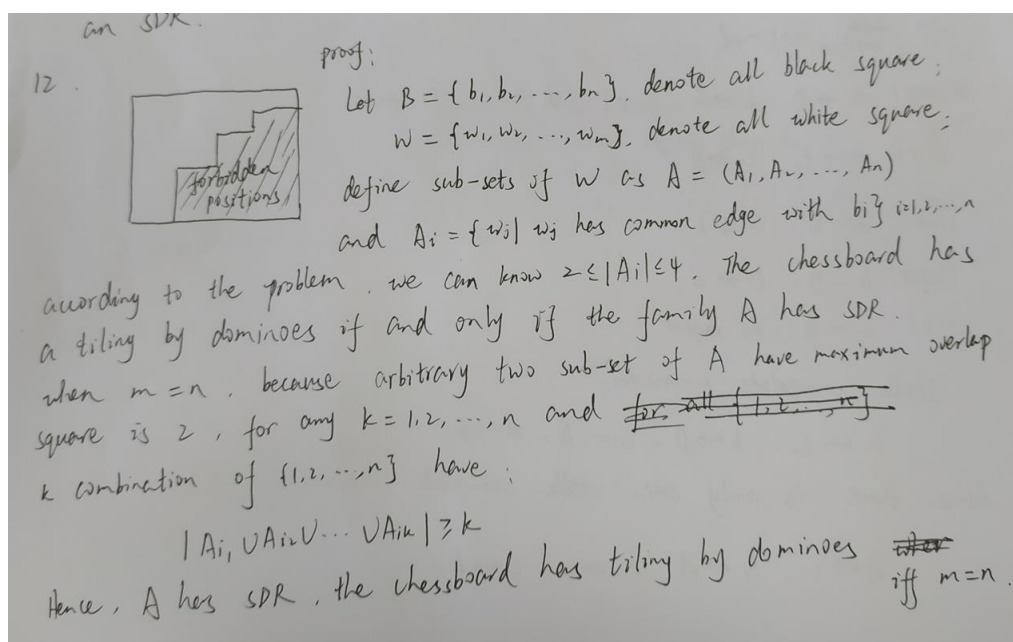 an SDR.
12.
proof:
forbidden
positions
Let B = {b₁, b₂, ..., bₙ}, denote all black square;
W = {w₁, w₂, ..., wₘ}, denote all white square;
define sub-sets of W as A = (A₁, A₂, ..., Aₙ)
and Aᵢ = {wⱼ| wⱼ has common edge with bᵢ} i=1,2,...,n
according to the problem, we can know 2≤|Aᵢ|≤4. The chessboard has
a tiling by dominoes if and only if the family A has SDR.
when m = n, because arbitrary two sub-set of A have maximum overlap
square is 2, for any k = 1, 2, ..., n and for all {1, 2, ..., n}
k combination of {1, 2, ..., n} have:
|Aᵢ₁ ∪ Aᵢ₂ ∪ ... ∪ Aᵢₖ| ≥ k
Hence, A has SDR, the chessboard has tiling by dominoes
iff m=n.